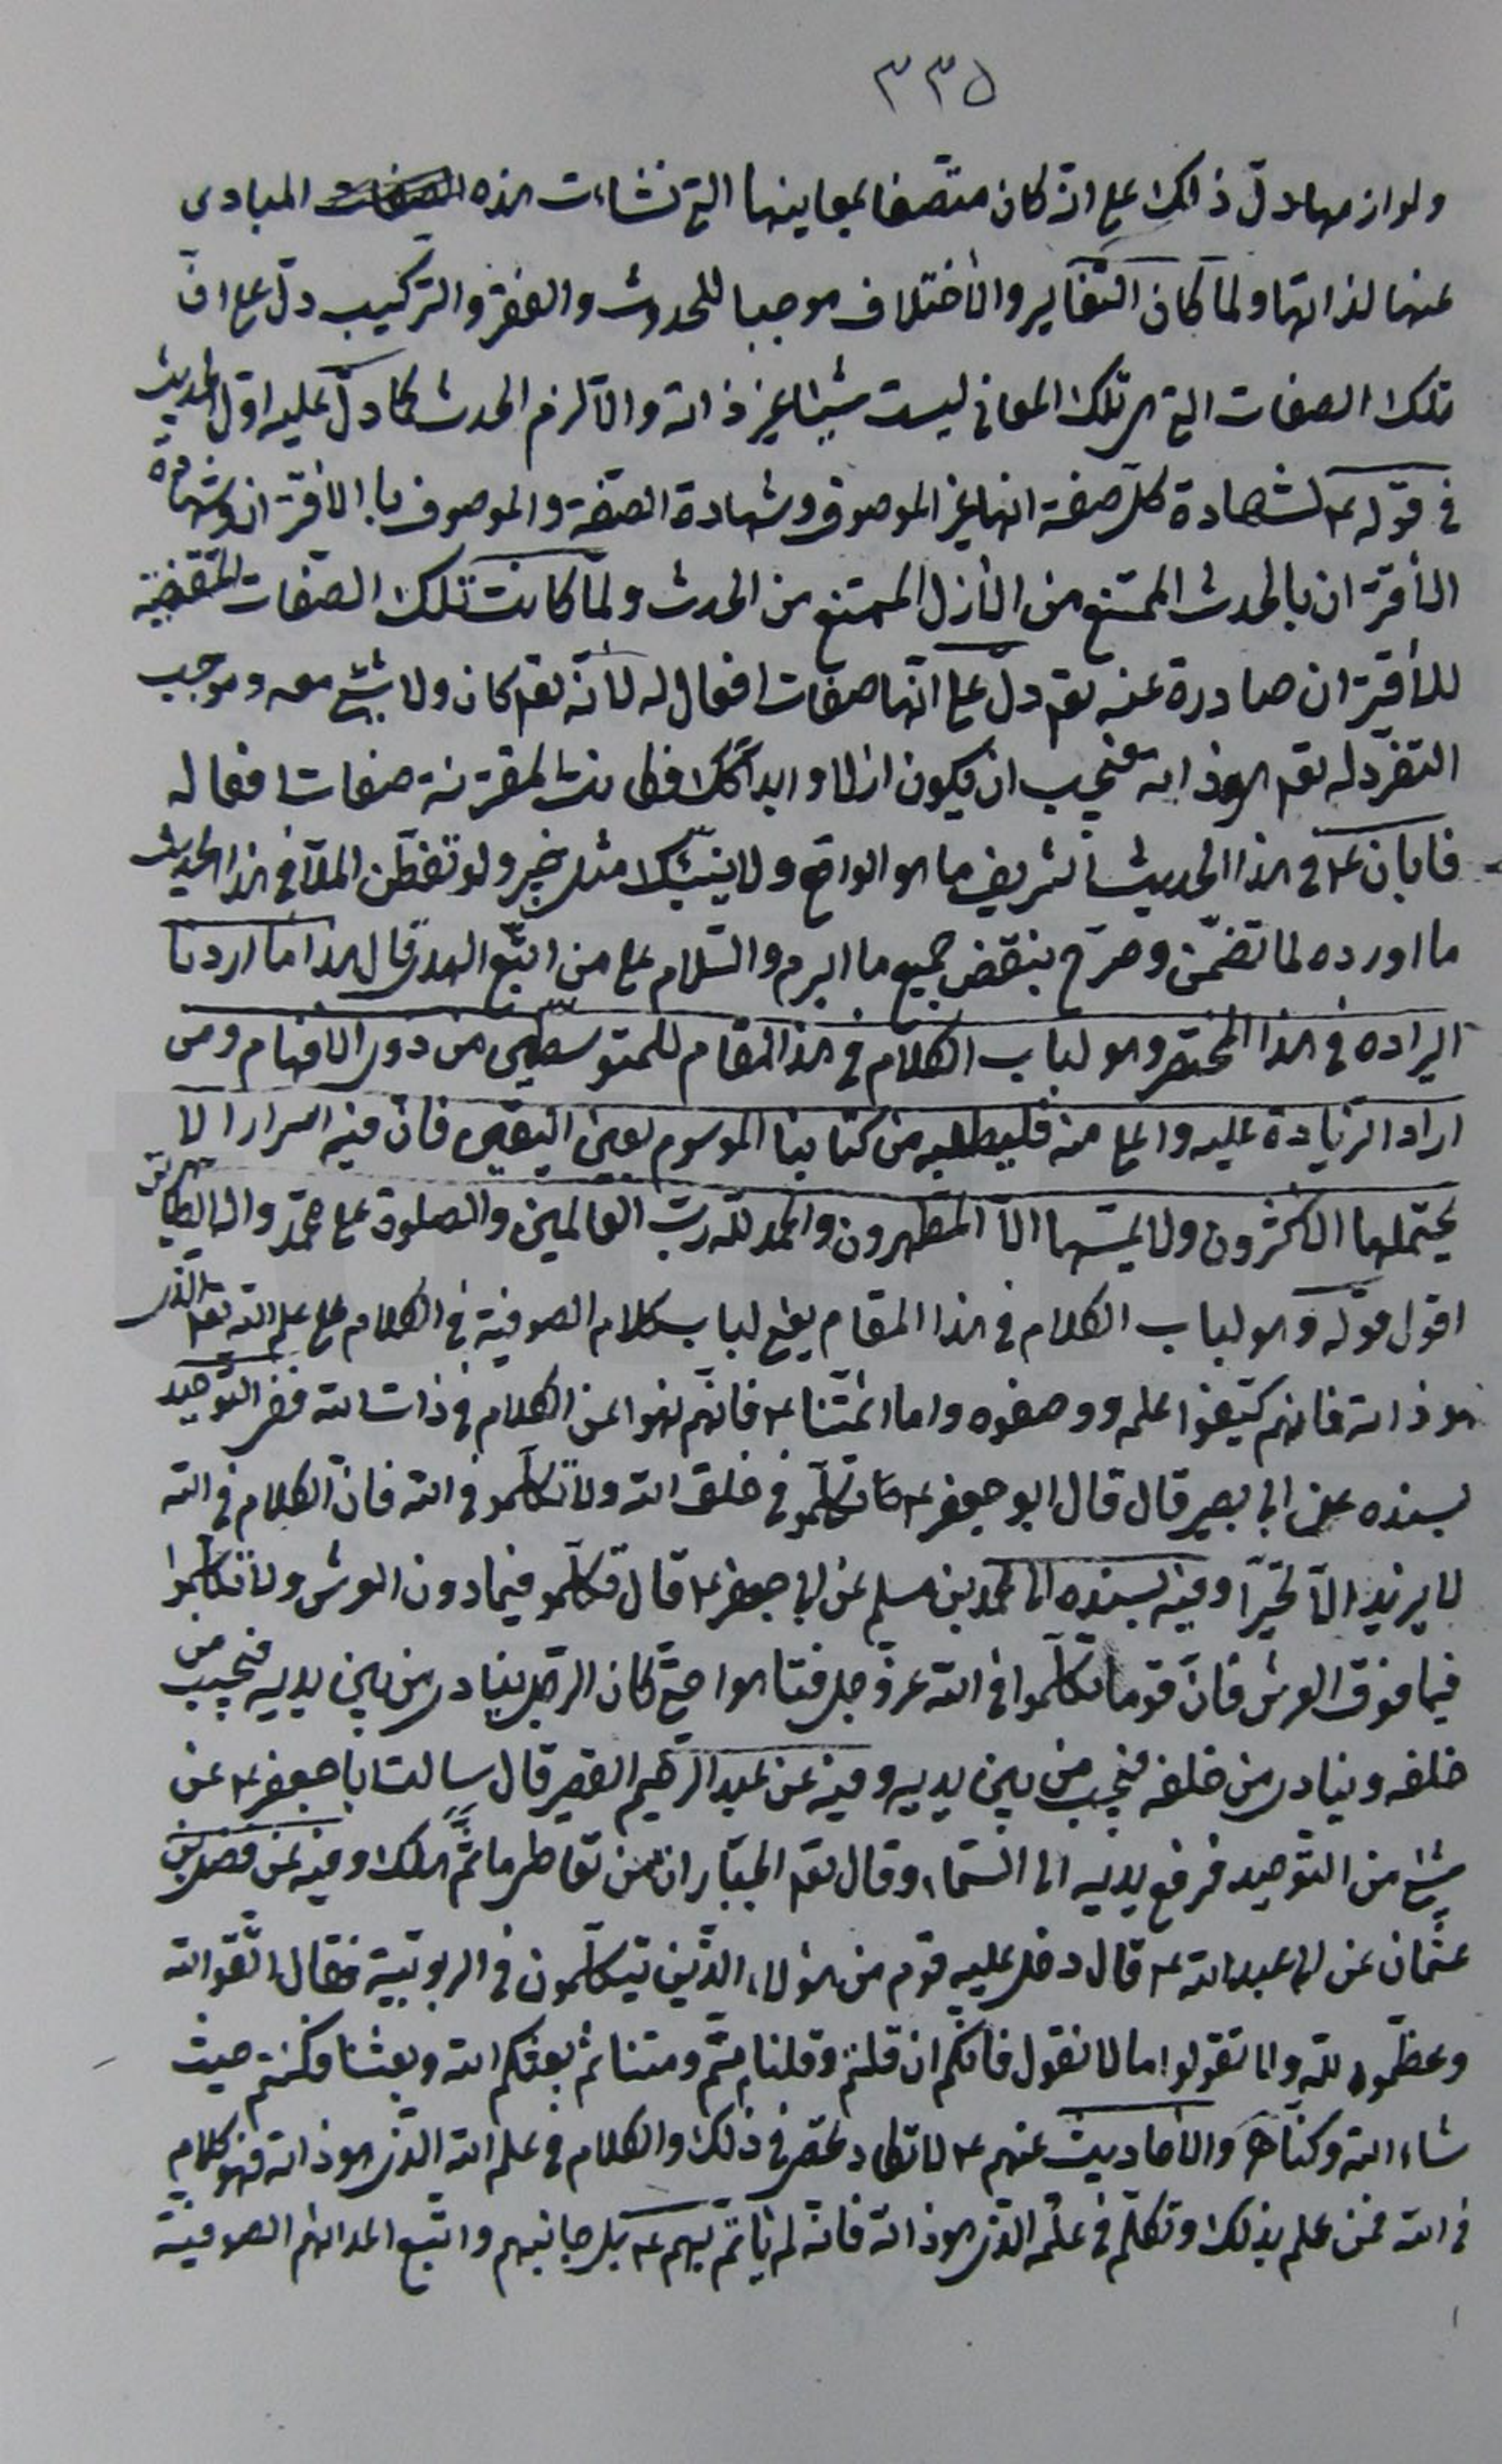 ٣٣٥
ولوازمها دل ذلك على انه كان متصفا بمعاينها التي نشاءت هذه الصفات المبادى
عنها لذاتها ولما كان التغاير والأختلاف موجبا للحدوث والفقر والتركيب دلّ على انّ
تلك الصفات التي هي تلك المعاني ليست شيئا غير ذاته والّا لزم الحدث كما دلّ عليه اوّل الحديث
في قوله ع لشهادة كلّ صفة انها غير الموصوف وشهادة الصّفة والموصوف بالأقتران وشهادة
الأقتران بالحدث الممتنع من الأزل الممتنع من الحدث ولمّا كانت تلك الصّفات المقتضية
للأقتران صادرة عنه تعم دلّ على انّها صفات افعال له لأنّه تعم كان ولا شيء معه وموجب
التفرّد له تعم هو ذاته فيجب ان يكون ازلا وابدا كك فكانت المقترنة صفات افعاله
فابان ع في هذا الحديث الشريف ما هو الواقع ولا ينبّئك مثل خبير ولو تفطّن الملّا في هذا الحديث
ما اورده لما تضمّن وصرّح بنقض جميع ما ابرم والسّلام على من اتّبع الهدى قال هذا ما اردنا
ايراده في هذا المختصر وهو لباب الكلام في هذا المقام للمتوسطين من ذوى الافهام ومن
اراد الزيادة عليه واعلى منه فليطلبه من كتابنا الموسوم بعين اليقين فانّ فيه اسرارا لا
يحتملها الاكثرون ولا يمسّها الّا المطهرون والحمد للّه ربّ العالمين والصلوة على محمّد واله الطّاهرين
اقول قوله وهو لباب الكلام في هذا المقام يعني لباب كلام الصوفية في الكلام على علم الله تعم الذى
هو ذاته فانهم كيّفوا علمه ووصفوه واما ائمّتنا ع فانّهم نهوا عن الكلام في ذات الله ففي التّوحيد
بسنده عن ابي بصير قال قال ابو جعفر ع تكلّمو في خلق الله ولا تكلّمو في الله فانّ الكلام في الله
لا يزيد الّا تحيّرا وفيه بسنده الى محمد بن مسلم عن ابي جعفر ع قال تكلّمو فيما دون العرش ولا تكلّموا
فيما فوق العرش فانّ قوما تكلّموا في الله عزّ وجل فتاهوا حتى كان الرّجل ينادى من بين يديه فيجيب من
خلفه وينادى من خلفه فيجيب من بين يديه وفيه عن عبد الرّحيم القصير قال سالت ابا جعفر ع عن
شيء من التّوحيد فرفع يديه الى السّماء وقال تعم الجبّار انّ من تعاطى ما ثمّ هلك وفيه عن فضيل بن
عثمان عن ابي عبد الله ع قال دخل عليه قوم من هؤلاء الّذين يتكلّمون في الربوبيّة فقال اتّقو الله
وعظّموه للّه ولا تقولوا ما لا نقول فانّكم ان قلتم وقلنا متّم ومتنا ثمّ بعثكم الله وبعثنا وكنتم حيث
شاء الله وكنّا والأحاديث عنهم ع لا تكاد تحصى في ذلك والكلام في علم الله الذى هو ذاته فهو كلام
في الله فمن علم بذلك وتكلّم في علمه الذى هو ذاته فانّه لم يأتمّ بهم ع بل جانبهم واتّبع اعدائهم الصوفيّة